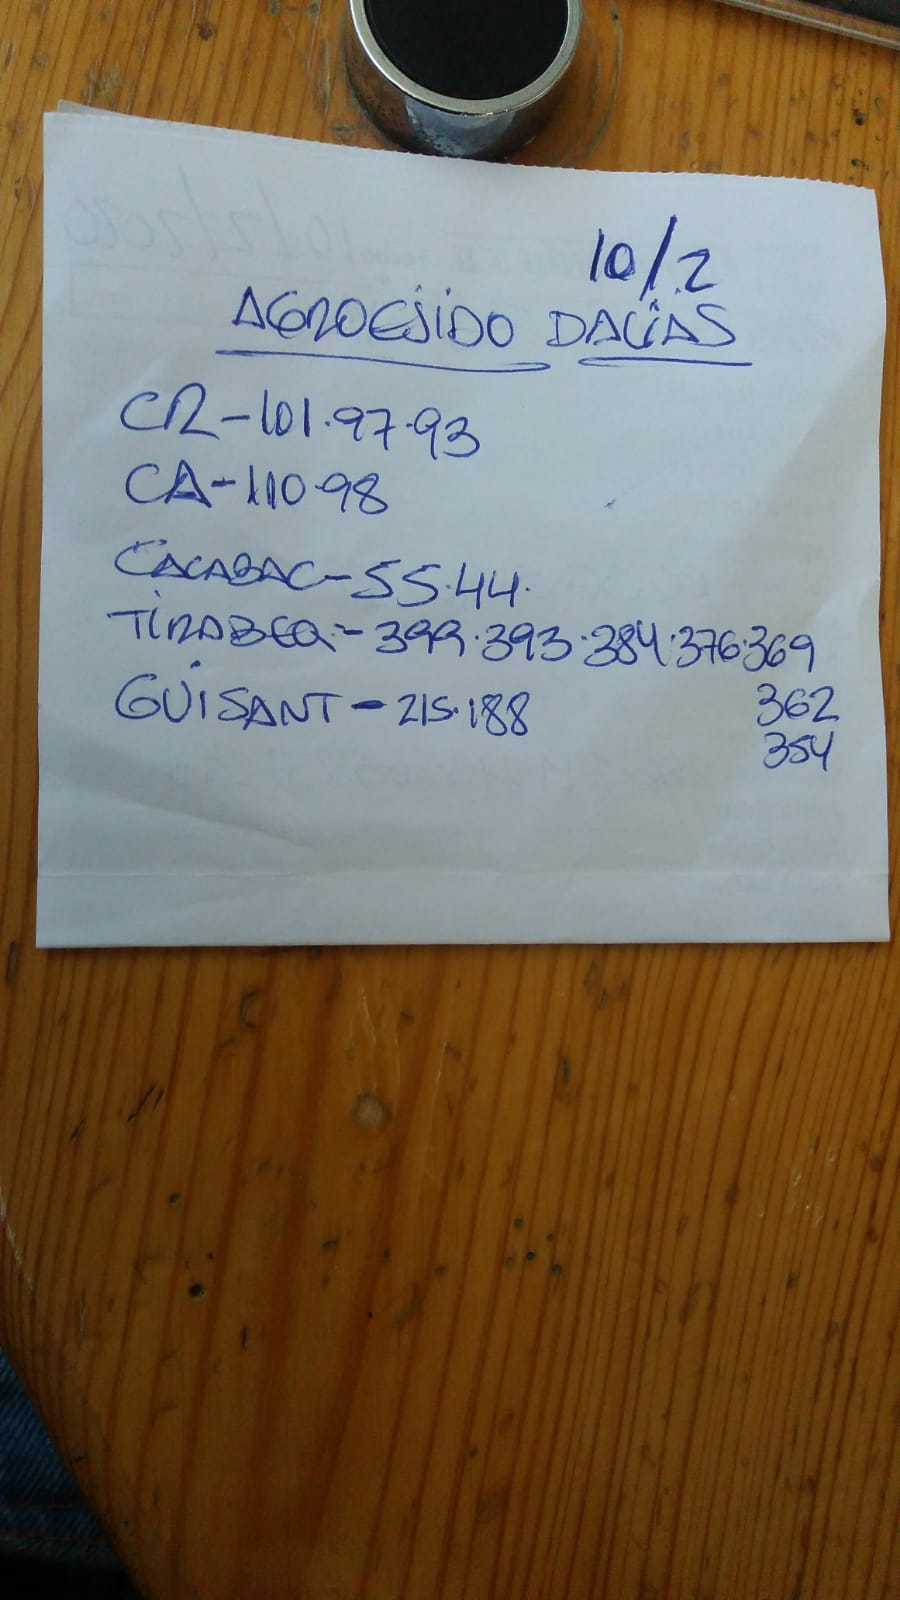 10/2
AGROEJIDO DALIAS
CR-101.97.93
CA-110.98
CALABAC-55.44.
TIRABEQ.-399.393.384.376.369
362
GUISANT-215.188
354